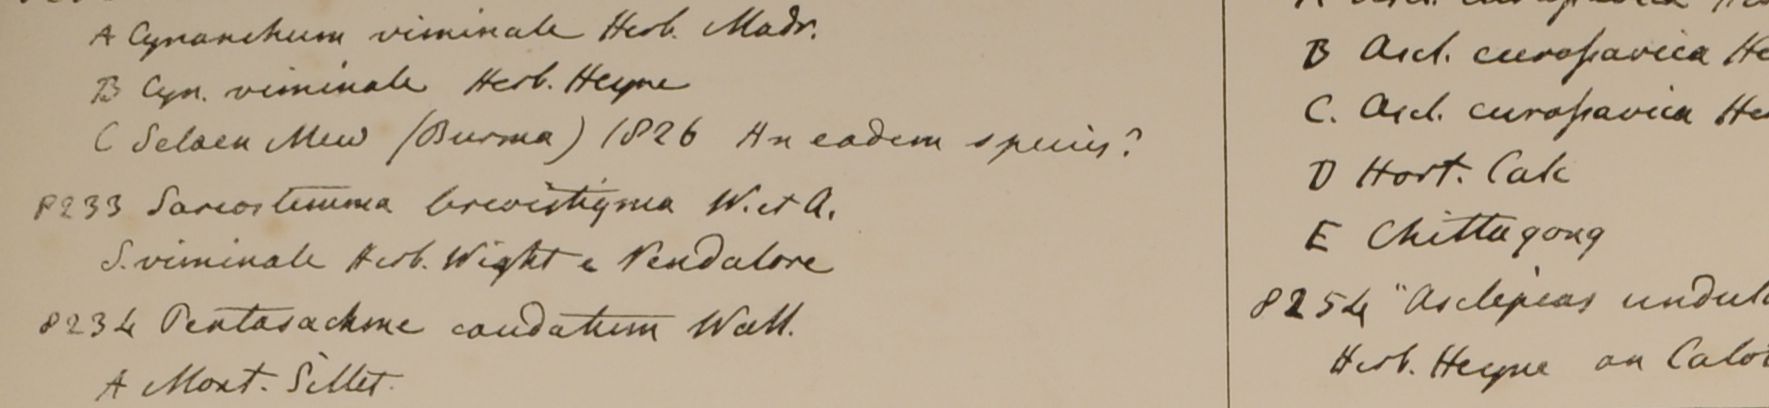 A Cynanchum viminale Herb. Madr.
B Cyn. viminale Herb. Heyne
C Selaen Mew (Burma) 1826 An eadem species?
8233 Sarcostemma brevistigma W. et A.
S. viminale Herb. Wight e Vendalore
8234 Pentasachme caudatum Wall.
A Mont. Sillet.
B Ascl. curassavica He
C. Ascl. curassavica He
D Hort. Calc
E Chittagong
8254 "Asclepias undul
Herb. Heyne an Calo